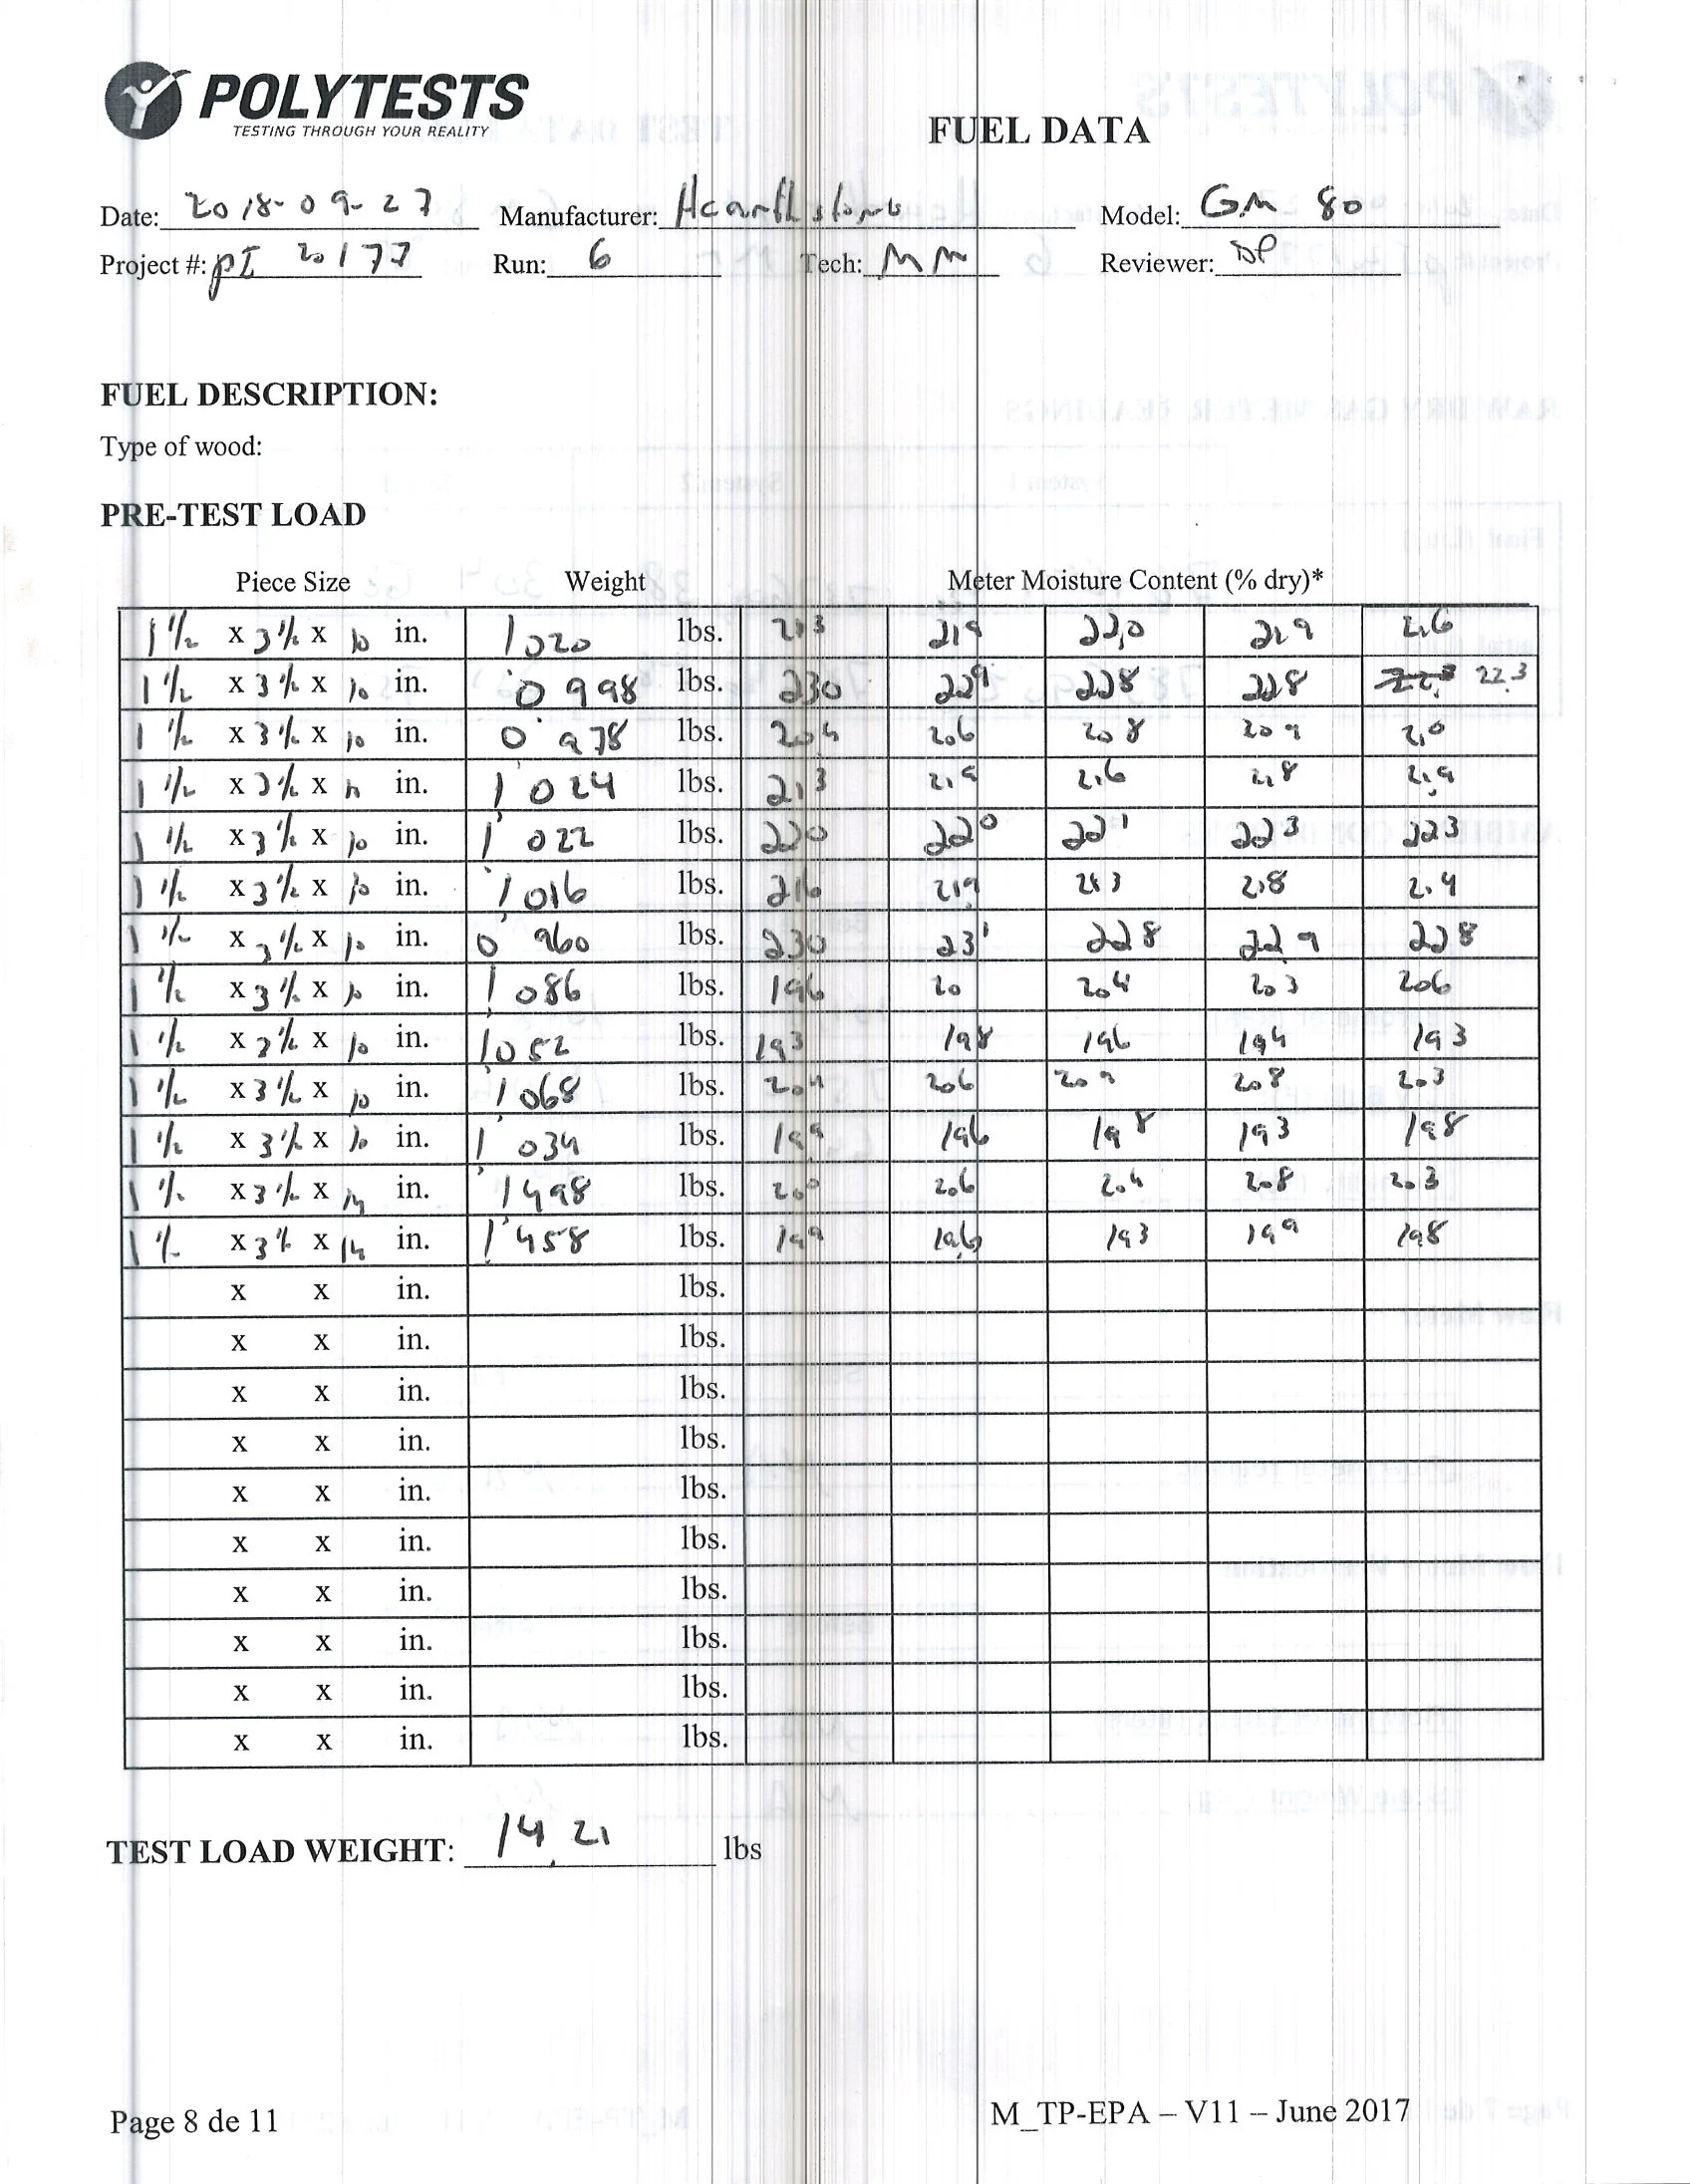 POLYTESTS
TESTING THROUGH YOUR REALITY
FUEL DATA
Date: 2018-09-27 Manufacturer: Hearthstone Model: GM 80
Project #: PI 20177 Run: 6 Tech: MM Reviewer: DP
FUEL DESCRIPTION:
Type of wood:
PRE-TEST LOAD
Piece Size Weight Meter Moisture Content (% dry)*
1 1/2 x 3 1/2 x 10 in. 1,020 lbs. 21,3 21,9 22,0 21,9 21,6
1 1/2 x 3 1/2 x 10 in. 0,998 lbs. 23,0 22,9 22,8 22,8 22,3
1 1/2 x 3 1/2 x 10 in. 0,978 lbs. 20,4 20,6 20,8 20,9 21,0
1 1/2 x 3 1/2 x in. 1,024 lbs. 21,3 21,9 21,6 21,8 21,9
1 1/2 x 3 1/2 x 10 in. 1,022 lbs. 22,0 22,0 22,1 22,3 22,3
1 1/2 x 3 1/2 x 10 in. 1,016 lbs. 21,6 21,9 21,3 21,8 21,4
1 1/2 x 3 1/2 x 10 in. 0,960 lbs. 23,0 23,1 22,8 22,9 22,8
1 1/2 x 3 1/2 x 10 in. 1,086 lbs. 19,6 20 20,4 20,3 20,6
1 1/2 x 3 1/2 x 10 in. 1,052 lbs. 19,3 19,8 19,6 19,4 19,3
1 1/2 x 3 1/2 x 10 in. 1,068 lbs. 20,6 20,9 20,8 20,3
1 1/2 x 3 1/2 x 10 in. 1,034 lbs. 19,9 19,6 19,8 19,3 19,8
1 1/2 x 3 1/2 x 14 in. 1,498 lbs. 20,0 20,6 20,4 20,8 20,3
1 1/2 x 3 1/2 x 14 in. 1,458 lbs. 19,9 19,6 19,3 19,9 19,8
x x in. lbs.
x x in. lbs.
x x in. lbs.
x x in. lbs.
x x in. lbs.
x x in. lbs.
x x in. lbs.
x x in. lbs.
x x in. lbs.
x x in. lbs.
TEST LOAD WEIGHT: 14,21 lbs
Page 8 de 11 M_TP-EPA – V11 – June 2017